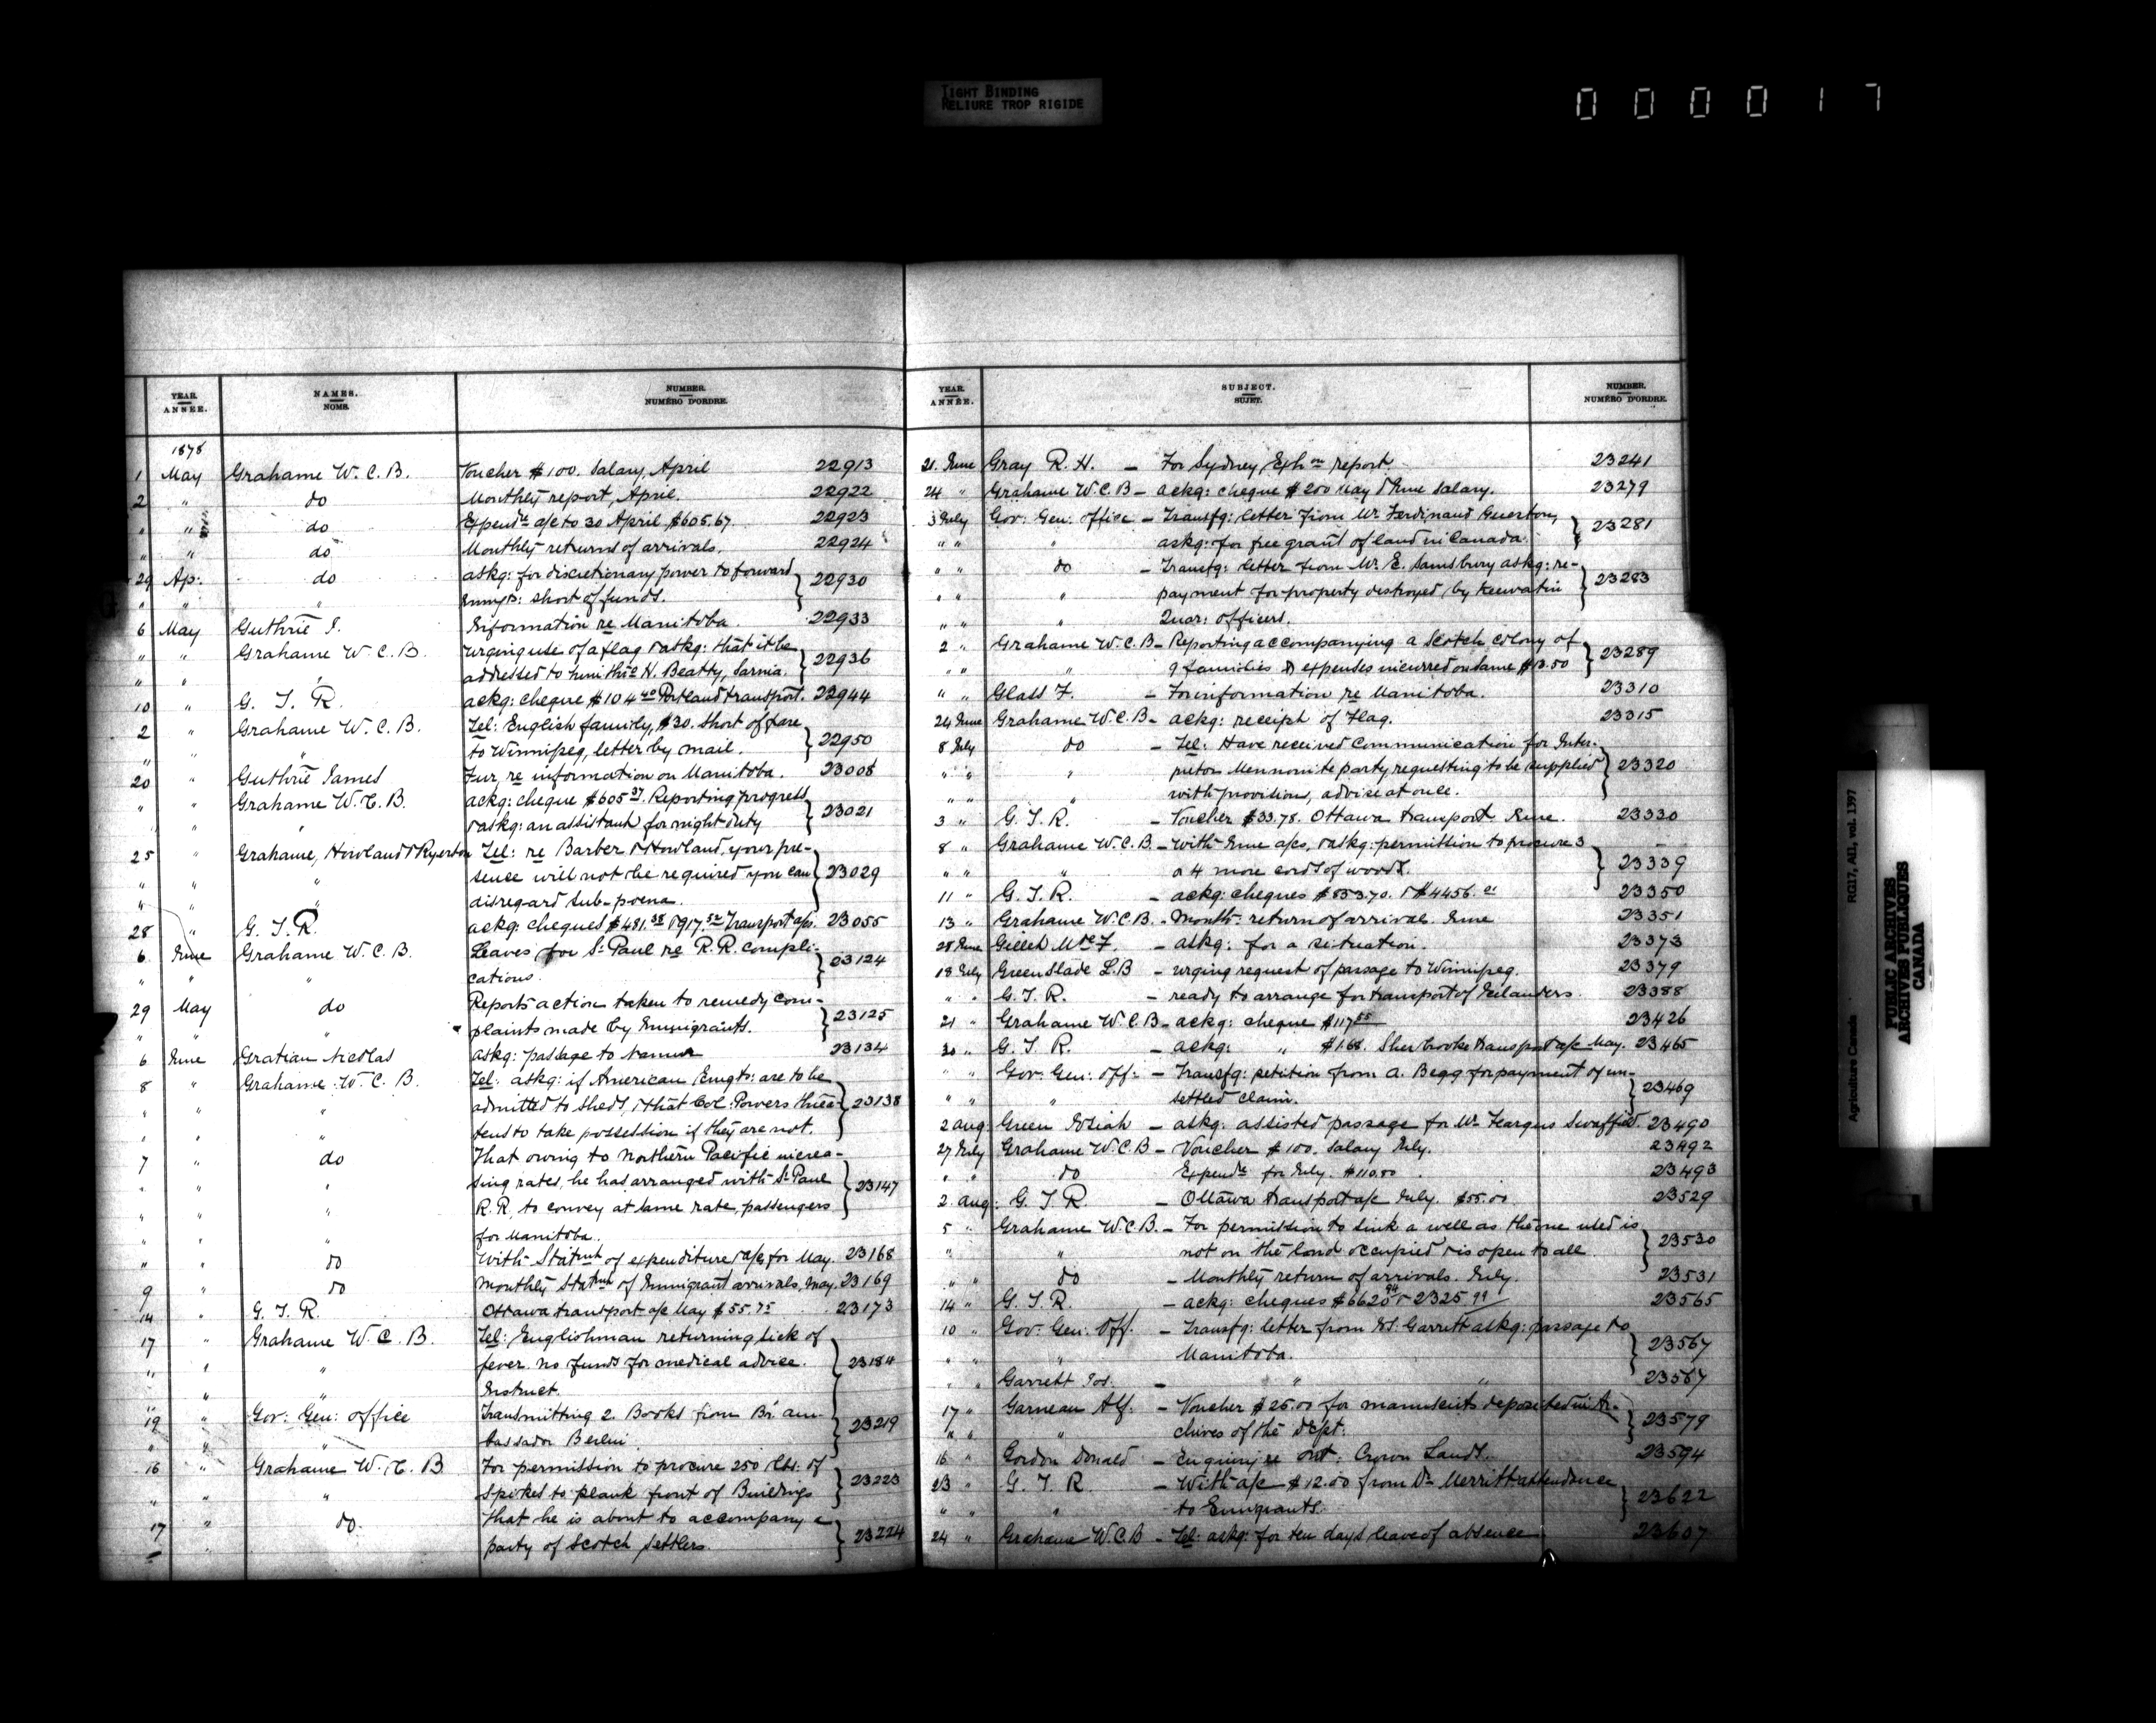 TIGHT BINDING
RELIURE TROP RIGIDE
0 0 0 0 1 7
YEAR. ANNÉE. NAMES. NOMS. NUMBER. NUMÉRO D'ORDRE.
1878
1 May Grahame W. C. B. Voucher $100. Salary, April 22913
2 " do Monthly report, April. 22922
" " do Expendre a/c to 30 April $605.67. 22923
" " do Monthly returns of arrivals. 22924
29 Ap: do askg: for discretionary power to forward
" " " Immgts: short of funds. } 22930
6 May Guthrie J. Information re Manitoba. 22933
" " Grahame W. C. B. Urging use of a flag & askg: that it be
" " " addressed to him thro H. Beatty, Sarnia. } 22936
10 " G. T. R. ackg: cheque $104.40 Portland transport. 22944
2 " Grahame W. C. B. Tel: English family, $30. short of fare
" " to Winnipeg, letter by mail. } 22950
20 " Guthrie James Fur. re information on Manitoba. 23008
" " Grahame W. C. B. ackg: cheque $605.37. Reporting progress
" " " & askg: an assistant for night duty } 23021
25 " Grahame, Howland & Ryerton Tel: re Barber & Howland, your pre-
" " " sence will not be required you can } 23029
" " " disregard sub-poena.
28 " G. T. R. ackg: cheques $481.38 & 917.52 Transport a/cs. 23055
6 June Grahame W. C. B. Leaves for St Paul re R.R. compli-
" " cations. } 23124
29 May do Reports action taken to remedy com-
" " " plaints made by Immigrants. } 23125
6 June Gratian Nicolas askg: passage to Namur 23134
8 " Grahame W. C. B. Tel: askg: if American Emgts: are to be
" " " admitted to sheds, & that Col: Powers threa- } 23138
" " " tens to take possession if they are not.
7 " do That owing to Northern Pacific increa-
" " " sing rates, he has arranged with St Paul } 23147
" " " R.R. to convey at same rate, passengers
" " " for Manitoba.
" " do With Statmt of expenditure & a/cs for May. 23168
9 " do Monthly Statmt of Immigrant arrivals, May. 23169
14 " G. T. R. Ottawa transport a/c May $55.75 23173
17 " Grahame W. C. B. Tel: Englishman returning sick of
" " " fever. no funds for medical advice. } 23184
" " " Instruct.
19 " Gov: Gen: office Transmitting 2 Books from Br. am-
" " " bassador Berlin. } 23219
16 " Grahame W. C. B For permission to procure 250 lbs. of
" " " Spikes to plank front of Buildings } 23223
17 " do. That he is about to accompany a
" party of Scotch settlers. } 23224
YEAR. ANNÉE. SUBJECT. SUJET. NUMBER. NUMÉRO D'ORDRE.
21 June Gray R. H. - For Sydney, Exhon report. 23241
24 " Grahame W. C. B - ackg: cheque $200 May & June salary. 23279
3 July Gov: Gen: office - Transfg: letter from Mr Ferdinand
" " " askg: for free grant of land in Canada. } 23281
" " do - Transfg: letter from Mr. E. Sainsbury askg: re-
" " " payment for property destroyed by Keewatin } 23283
" " " Quar: officers.
2 " Grahame W. C. B - Reporting accompanying a Scotch colony of
" " " 9 families & expenses incurred on same $13.50 } 23289
" " Glass F. - For information re Manitoba. 23310
24 June Grahame W. C. B - ackg: receipt of Flag. 23315
8 July do - Tel: Have received communication for Inter-
" " " pretor Mennonite party requesting to be supplied } 23320
" " " with provisions, advise at once.
3 " G. T. R. - Voucher $33.78. Ottawa transport June. 23330
8 " Grahame W. C. B. - With June a/cs, & askg: permission to procure 3
" " " or 4 more cords of wood. } 23339
11 " G. T. R. - ackg: cheques $853.70. & $4456.21 23350
13 " Grahame W. C. B. - Month: return of arrival. June 23351
28 June Mde F. - askg: for a situation. 23373
18 July Greenslade L. B - urging request of passage to Winnipeg. 23379
" " G. T. R. - ready to arrange for transport of Icelanders. 23388
21 " Grahame W. C. B - ackg: cheque $117.55 23426
30 " G. T. R. - ackg: " $1.68. Sherbrooke transport a/c May. 23465
" " Gov: Gen: Off: - Transfg: petition from A. Begg for payment of un-
" " " settled claim. } 23469
2 aug: Green - askg: assisted passage for Mr Feargus Swaffied. 23490
27 July Grahame W. C. B - Voucher $100. Salary July. 23492
" " do Expendre for July. $110.00 23493
2 aug: G. T. R - Ottawa transport a/c July. $55.00 23529
5 " Grahame W. C. B. - For permission to sink a well as the one used is
" " not on the land occupied & is open to all } 23530
" " do - Monthly return of arrivals. July. 23531
14 " G. T. R. - ackg: cheques $6620.94 & 2325.99 23565
10 " Gov: Gen: Off. - Transfg: letter from Garrett askg: passage to
" " " Manitoba. } 23567
" " Garrett Jos. - " " 23567
17 " Garneau Alf. - Voucher $25.00 for manuscripts deposited in Ar-
" " " chives of the Dept. } 23579
16 " Gordon Donald - Enquiring Ont: Crown Lands. 23594
23 " G. T. R - With a/c $12.00 from Dr Merritt attendance
" " " to Emigrants. } 23622
24 " Grahame W. C. B - Tel: askg: for ten days leave of absence 23607
Agriculture Canada RG17, AII, vol. 1397
PUBLIC ARCHIVES
ARCHIVES PUBLIQUES
CANADA